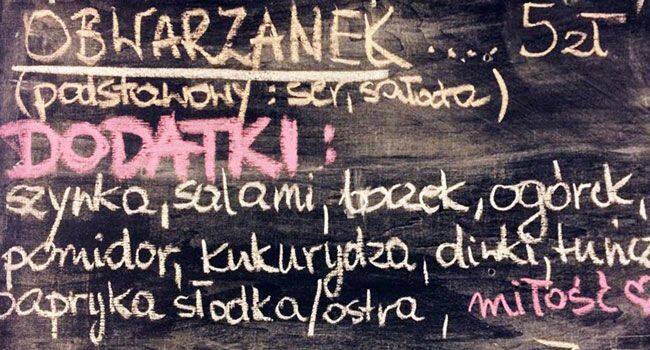 OBWARZANEK .... 5zł
(podstawowy: ser, sałata)
DODATKI:
szynka, salami, boczek, ogórek,
pomidor, kukurydza, oliwki, tuńcz
papryka słodka/ostra, miłość ♡